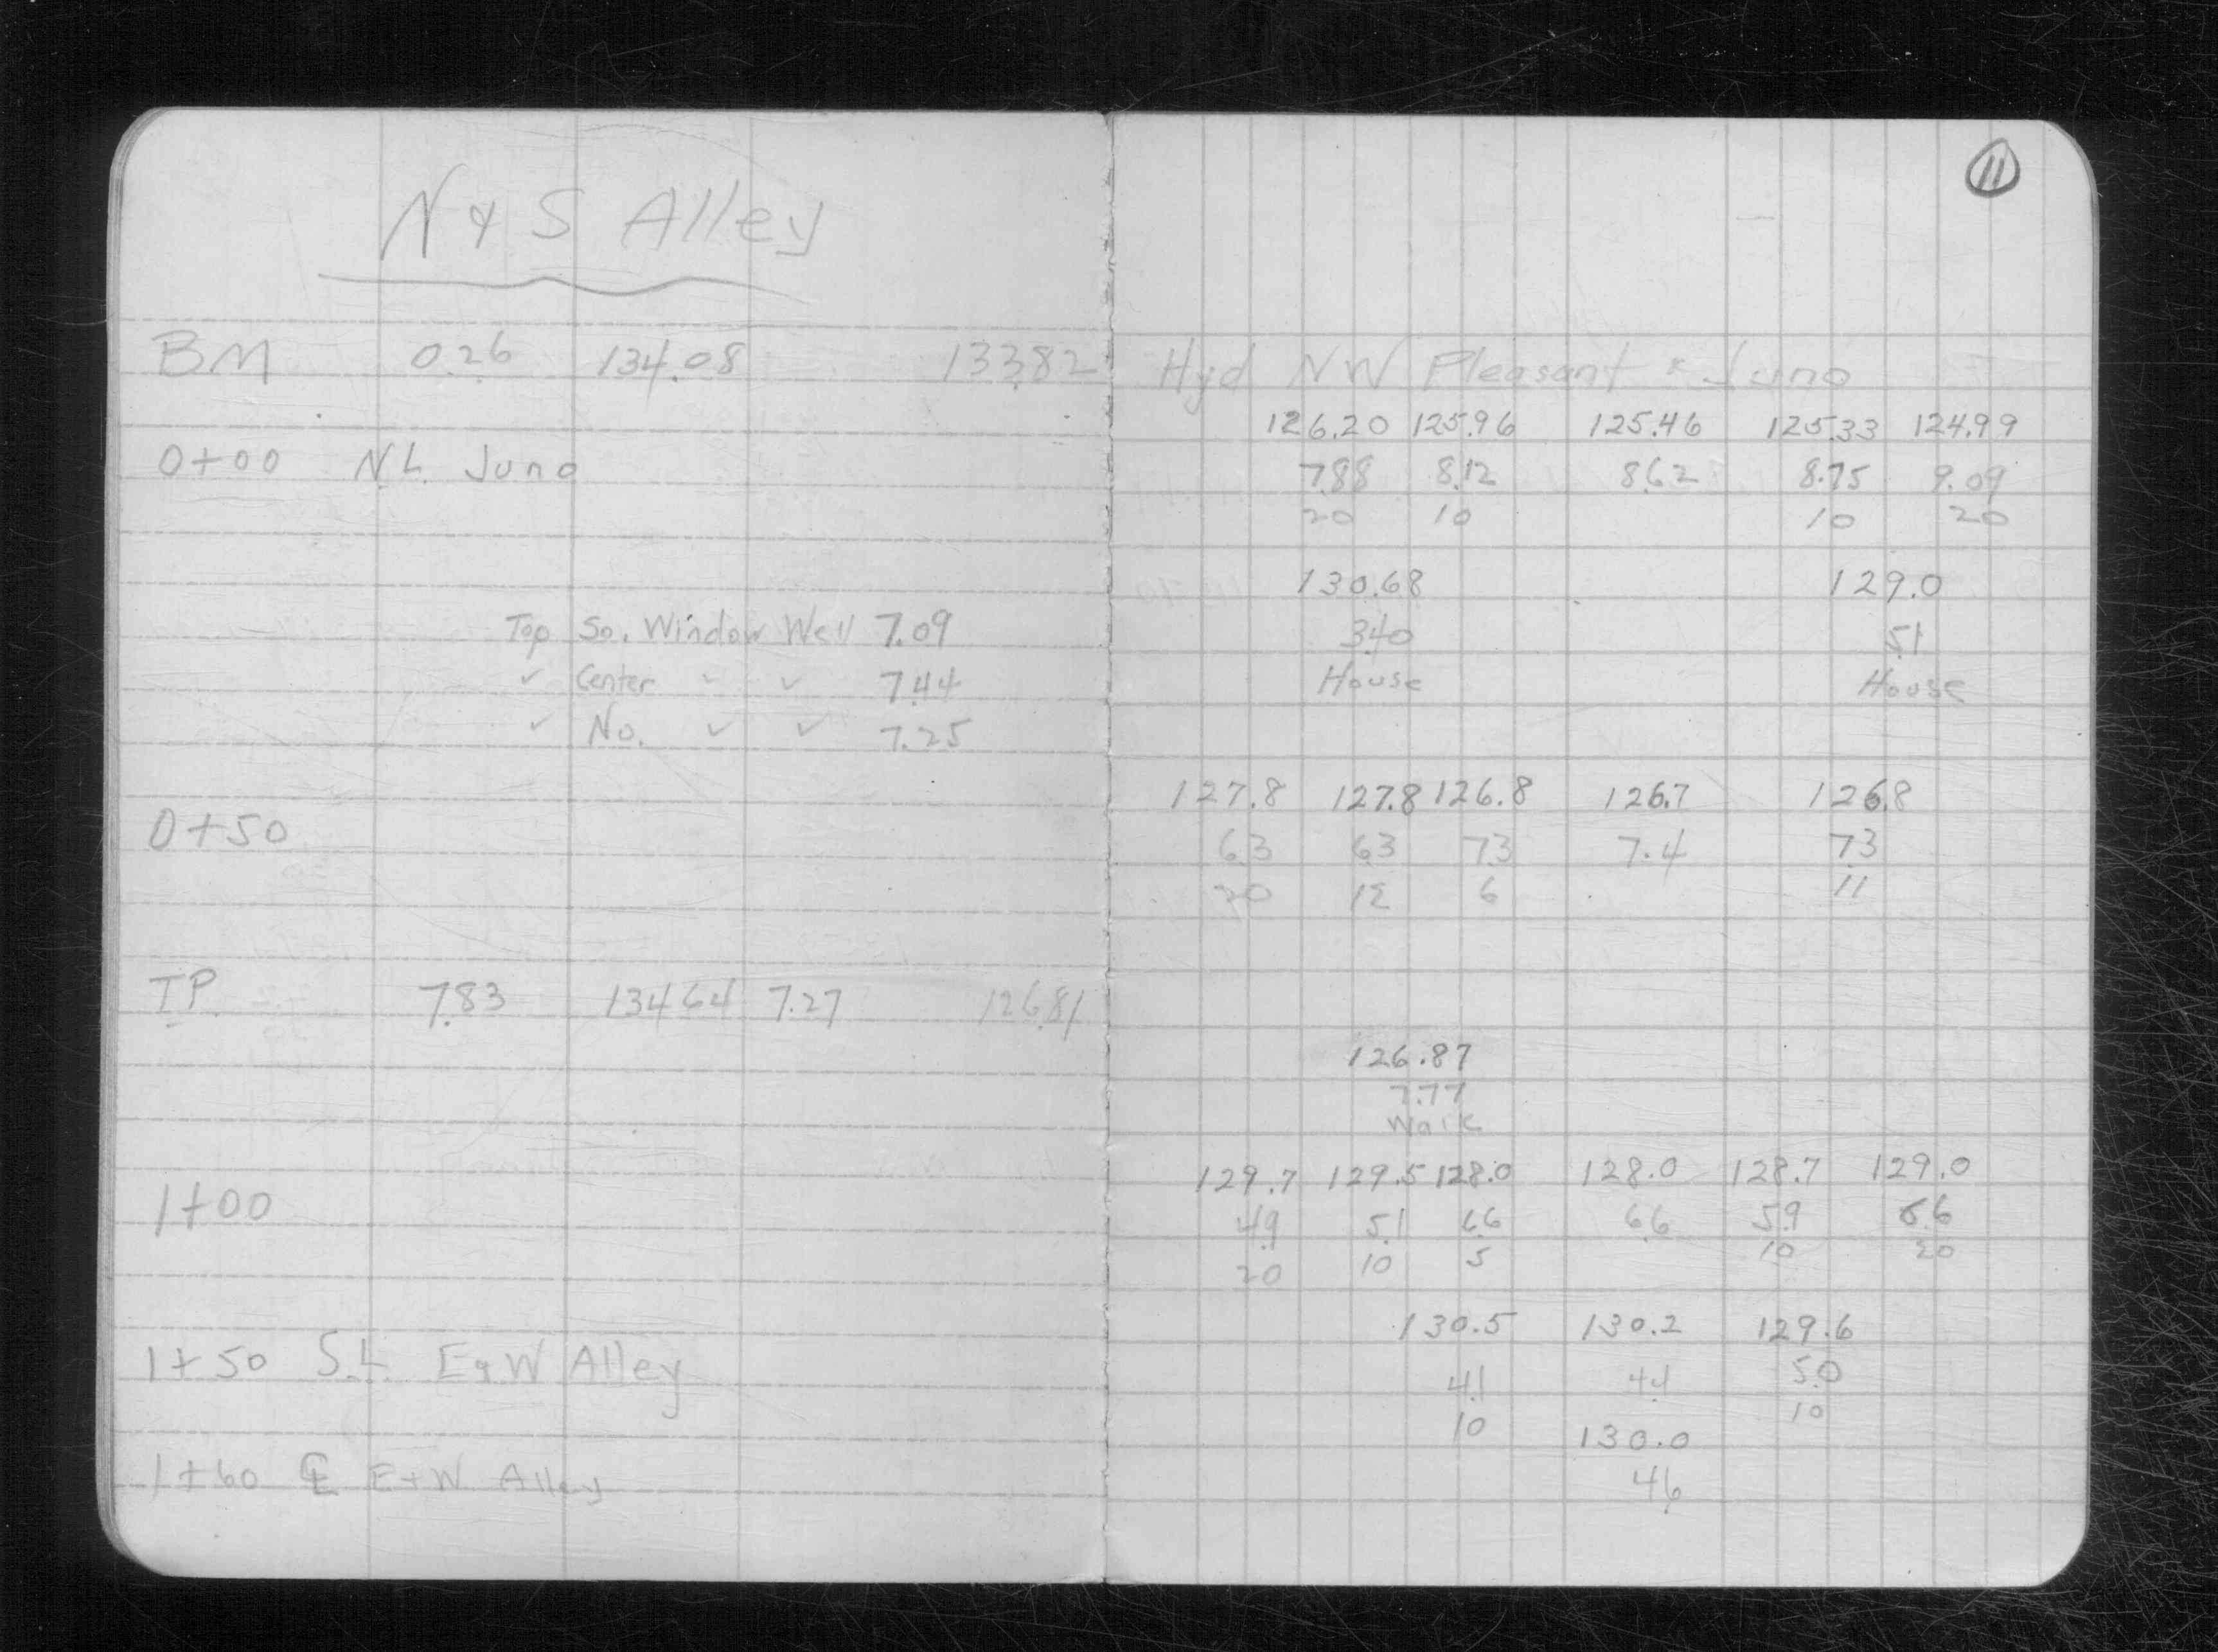 N & S Alley
BM 0.26 134.08 133.82
0+00 N.L. Juno
Top So. Window Well 7.09
✓ Center ✓ ✓ 7.44
✓ No. ✓ ✓ 7.25
0+50
T.P. 7.83 134.64 7.27 126.81
1+00
1+50 S.L. E&W Alley
1+60 ℄ E+W Alley
11
Hyd NW Pleasant & Juno
126.20 125.96 125.46 125.33 124.99
7.88 8.12 8.62 8.75 9.09
20 10 10 20
130.68 129.0
3.40 5.1
House House
127.8 127.8 126.8 126.7 126.8
6.3 6.3 7.3 7.4 7.3
20 12 6 11
126.87
7.77
Walk
129.7 129.5 128.0 128.0 128.7 129.0
4.9 5.1 6.6 6.6 5.9 5.6
20 10 5 10 20
130.5 130.2 129.6
4.1 4.4 5.0
10 10
130.0
4.6